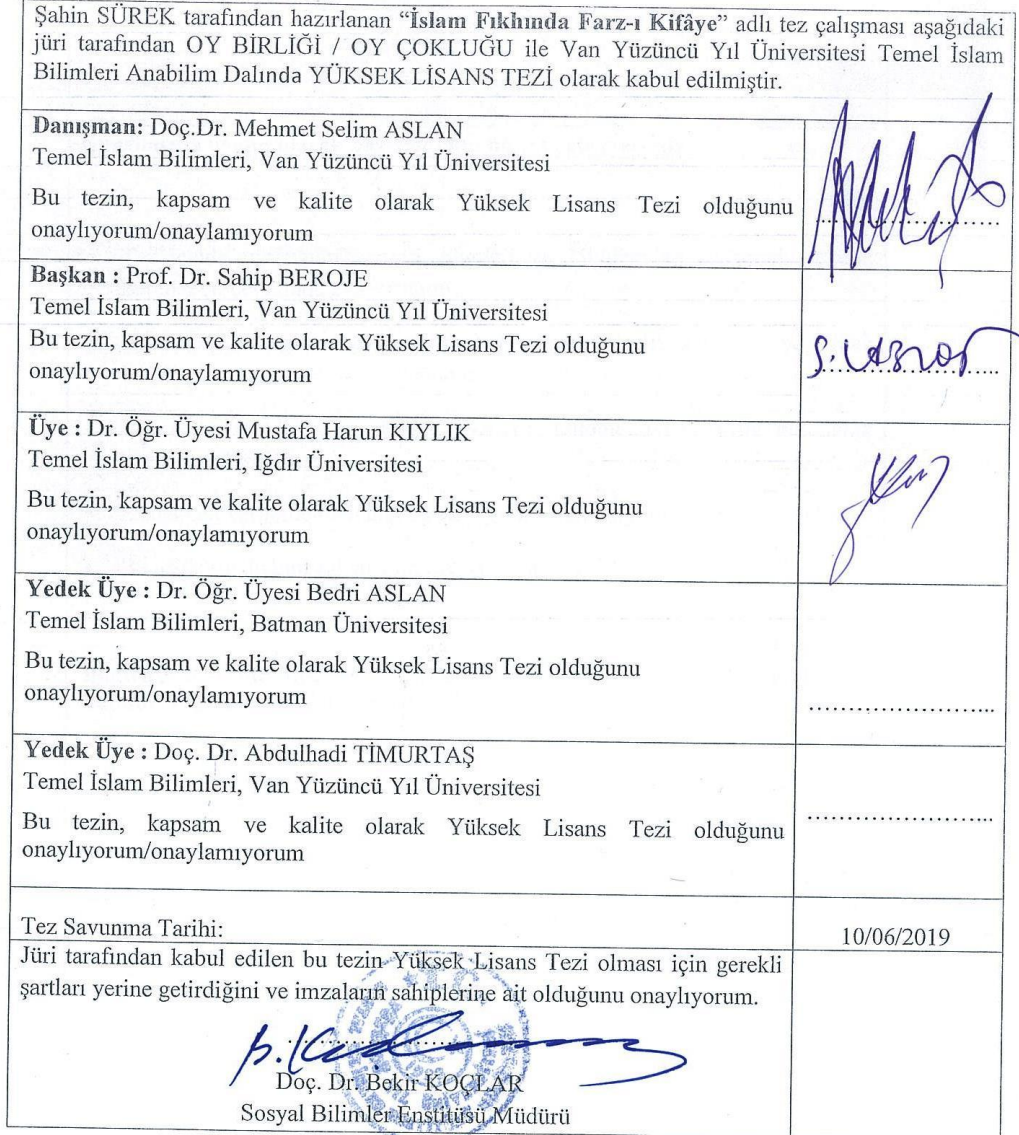 Şahin SÜREK tarafından hazırlanan “İslam Fıkhında Farz-ı Kifâye” adlı tez çalışması aşağıdaki
jüri tarafından OY BİRLİĞİ / OY ÇOKLUĞU ile Van Yüzüncü Yıl Üniversitesi Temel İslam
Bilimleri Anabilim Dalında YÜKSEK LİSANS TEZİ olarak kabul edilmiştir.
Danışman: Doç.Dr. Mehmet Selim ASLAN
Temel İslam Bilimleri, Van Yüzüncü Yıl Üniversitesi
Bu tezin, kapsam ve kalite olarak Yüksek Lisans Tezi olduğunu
onaylıyorum/onaylamıyorum
Başkan : Prof. Dr. Sahip BEROJE
Temel İslam Bilimleri, Van Yüzüncü Yıl Üniversitesi
Bu tezin, kapsam ve kalite olarak Yüksek Lisans Tezi olduğunu
onaylıyorum/onaylamıyorum
Üye : Dr. Öğr. Üyesi Mustafa Harun KIYLIK
Temel İslam Bilimleri, Iğdır Üniversitesi
Bu tezin, kapsam ve kalite olarak Yüksek Lisans Tezi olduğunu
onaylıyorum/onaylamıyorum
Yedek Üye : Dr. Öğr. Üyesi Bedri ASLAN
Temel İslam Bilimleri, Batman Üniversitesi
Bu tezin, kapsam ve kalite olarak Yüksek Lisans Tezi olduğunu
onaylıyorum/onaylamıyorum
.....................
Yedek Üye : Doç. Dr. Abdulhadi TİMURTAŞ
Temel İslam Bilimleri, Van Yüzüncü Yıl Üniversitesi
Bu tezin, kapsam ve kalite olarak Yüksek Lisans Tezi olduğunu
onaylıyorum/onaylamıyorum
.....................
Tez Savunma Tarihi:
10/06/2019
Jüri tarafından kabul edilen bu tezin Yüksek Lisans Tezi olması için gerekli
şartları yerine getirdiğini ve imzaların sahiplerine ait olduğunu onaylıyorum.
Doç. Dr. Bekir KOÇLAR
Sosyal Bilimler Enstitüsü Müdürü